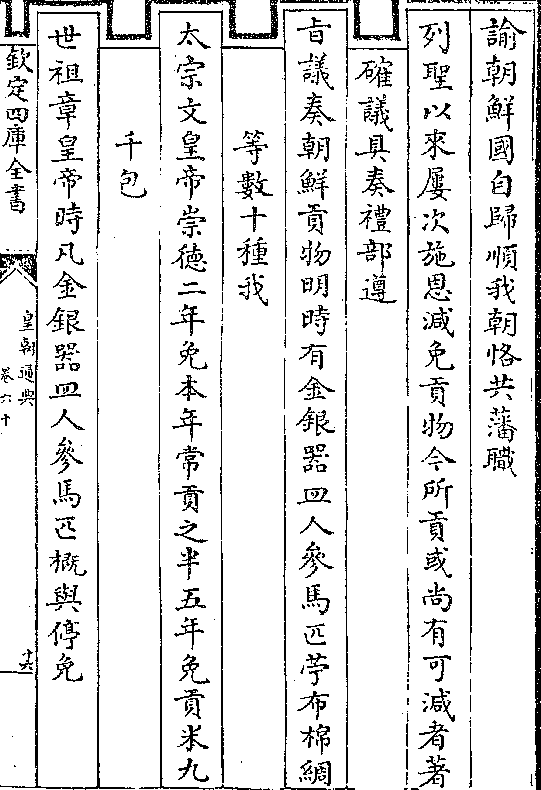 諭朝鮮國自歸順我朝恪共藩職
列聖以來屢次施恩減免貢物今所貢或尚有可減者著
確議具奏禮部遵
㫖議奏朝鮮貢物明時有金銀器皿人參馬匹苧布棉綢
等數十種我
太宗文皇帝崇徳二年免本年常貢之半五年免貢米九
千包
世祖章皇帝時凡金銀器皿人參馬匹概與停免
欽定四庫全書
皇朝通典
卷六十
十六